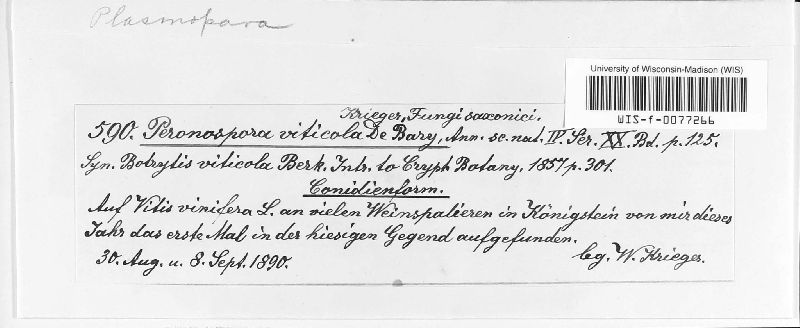 Plasmopara
University of Wisconsin-Madison (WIS)
WIS-f-0077266
Krieger, Fungi saxonici.
590. Peronospora viticola De Bary, Ann. sc. nat. IV. Ser. XX. Bd. p. 125.
Syn. Botrytis viticola Berk. Intr. to Crypt. Botany, 1857 p. 301.
Conidienform.
Auf Vitis vinifera L. an vielen Weinspalieren in Königstein von mir dieses
Jahr das erste Mal in der hiesigen Gegend aufgefunden.
30. Aug. u. 8. Sept. 1890.
lg. W. Krieger.